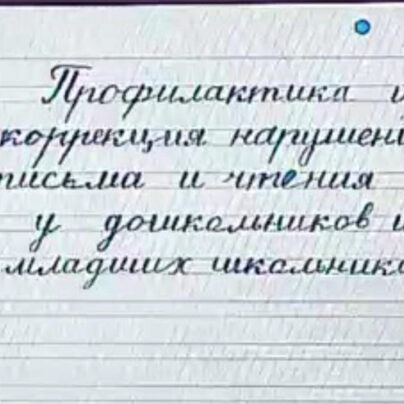 Профилактика и
коррекция нарушени
письма и чтения
у дошкольников и
младших школьнико